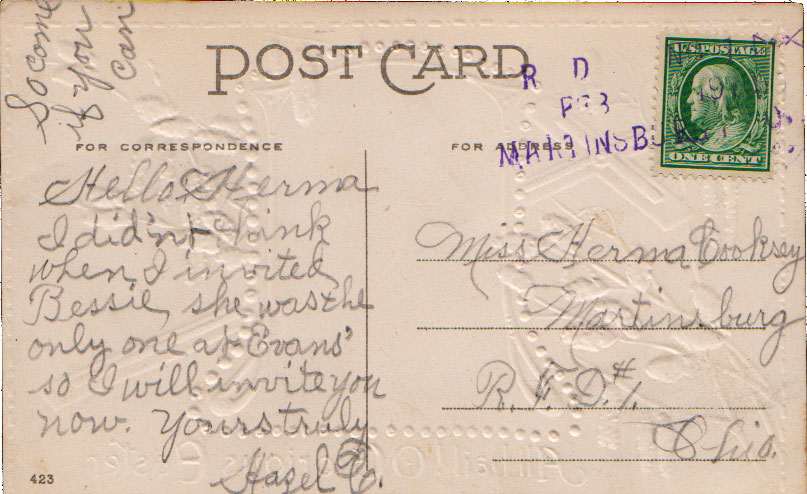 So come
if you
can
POST CARD
R D
FEB
MARTINSBURG
U.S. POSTAGE
ONE CENT
FOR CORRESPONDENCE
FOR ADDRESS
Hello Herma
I did'nt think
when I invited
Bessie, she was the
only one at Evans'
so I will invite you
now. Yours truly
Hazel C.
Miss Herma Cooksey
Martinsburg
R.F.D. #1.
Ohio.
423